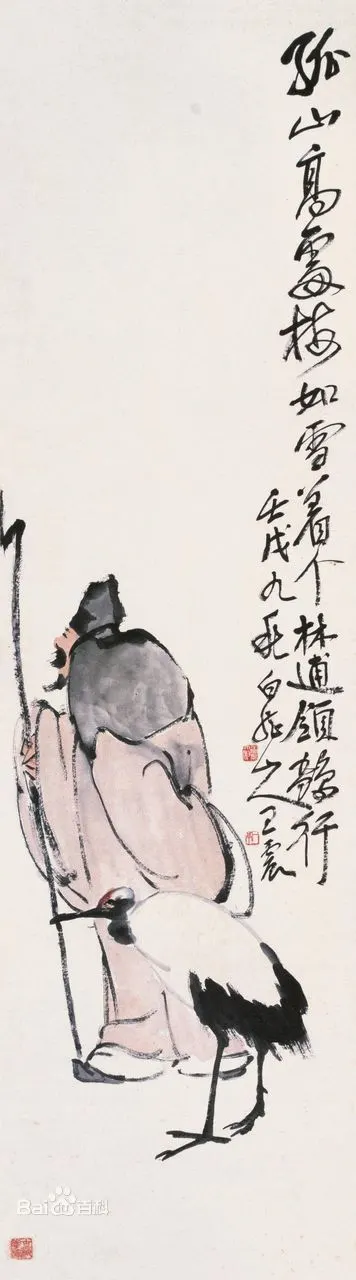 孤山高處梅如雪着个林逋領鶴行
壬戌九秋白龍山人王震
Bai百科